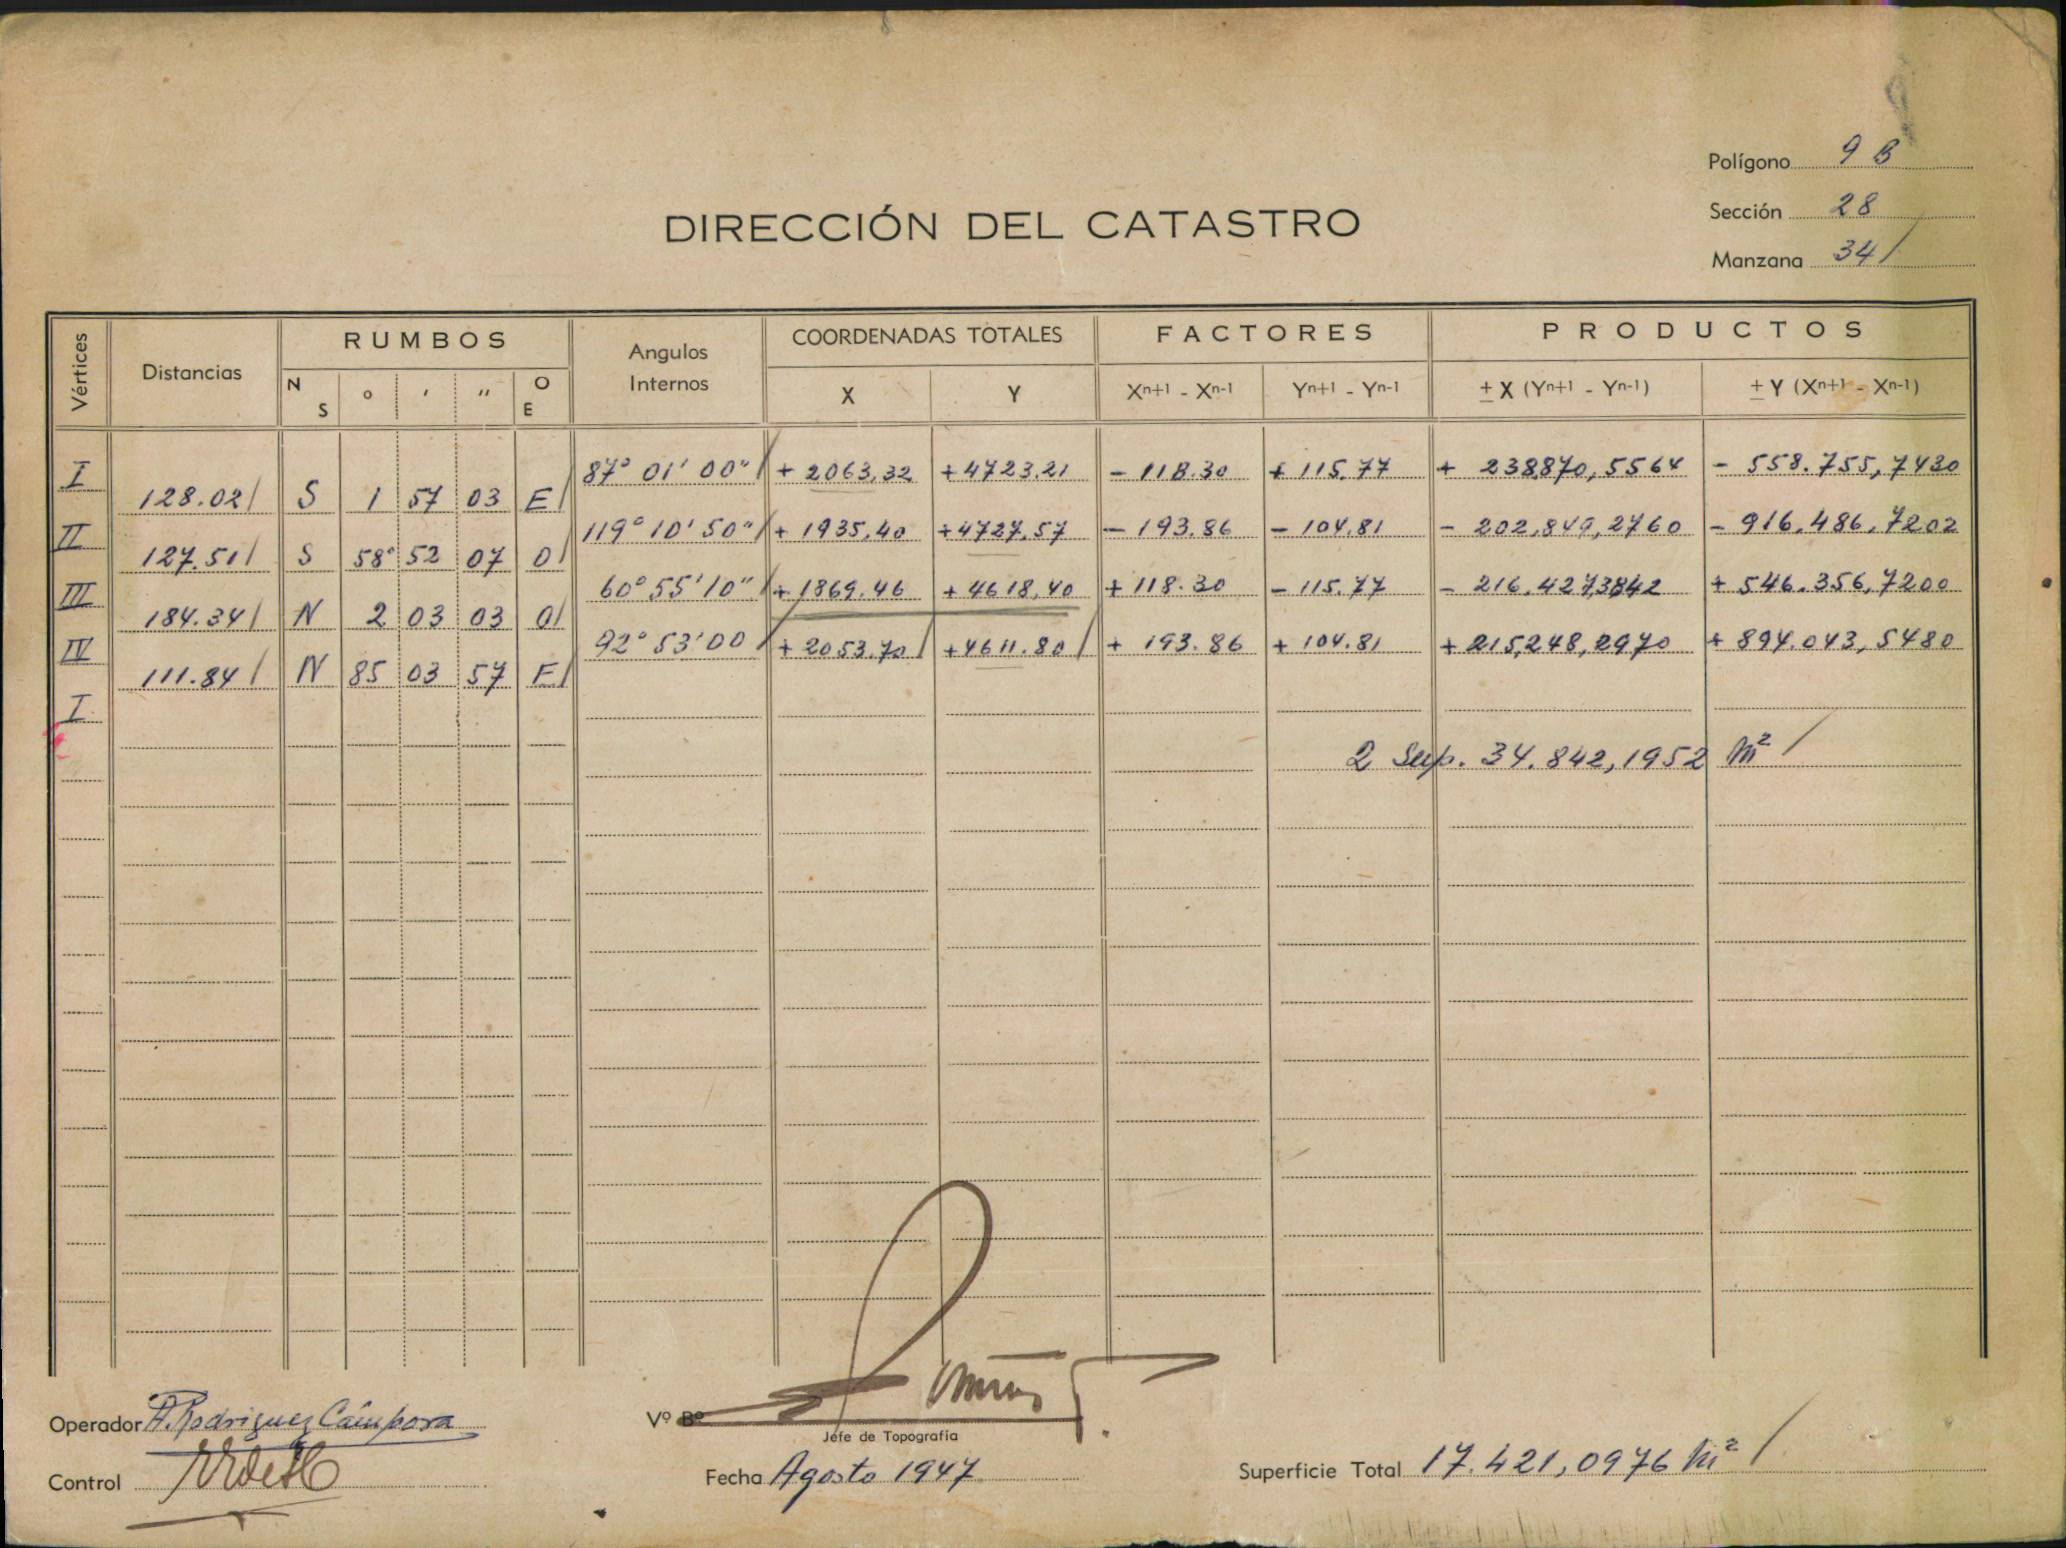 Polígono 9 B
Sección 28
Manzana 34
DIRECCIÓN DEL CATASTRO
Vértices Distancias RUMBOS Angulos Internos COORDENADAS TOTALES FACTORES PRODUCTOS
N S ° ' " O E X Y Xn+1 - Xn-1 Yn+1 - Yn-1 ± X (Yn+1 - Yn-1) ± Y (Xn+1 - Xn-1)
I 87° 01' 00" + 2063,32 +4723.21 - 118.30 + 115.77 + 238.870,5564 - 558.755,7430
128.02 S 1 57 03 E
II 119° 10' 50" + 1935.40 +4727,57 - 193.86 - 104.81 - 202.849,2760 - 916.486,7202
127.51 S 58° 52 07 O
III 60° 55' 10" + 1869.46 + 4618,40 + 118.30 - 115.77 - 216.427,3842 + 546.356,7200
184.34 N 2 03 03 O
IV 92° 53' 00 + 2053.70 +4611.80 + 193.86 + 104.81 + 215,248,2970 + 894.043,5480
111.84 N 85 03 57 E
I
2 Sup. 34.842,1952 m²
Operador A. Rodriguez Cámpora
Vº Bº
Jefe de Topografía
Control
Fecha Agosto 1947
Superficie Total 17.421,0976 m²